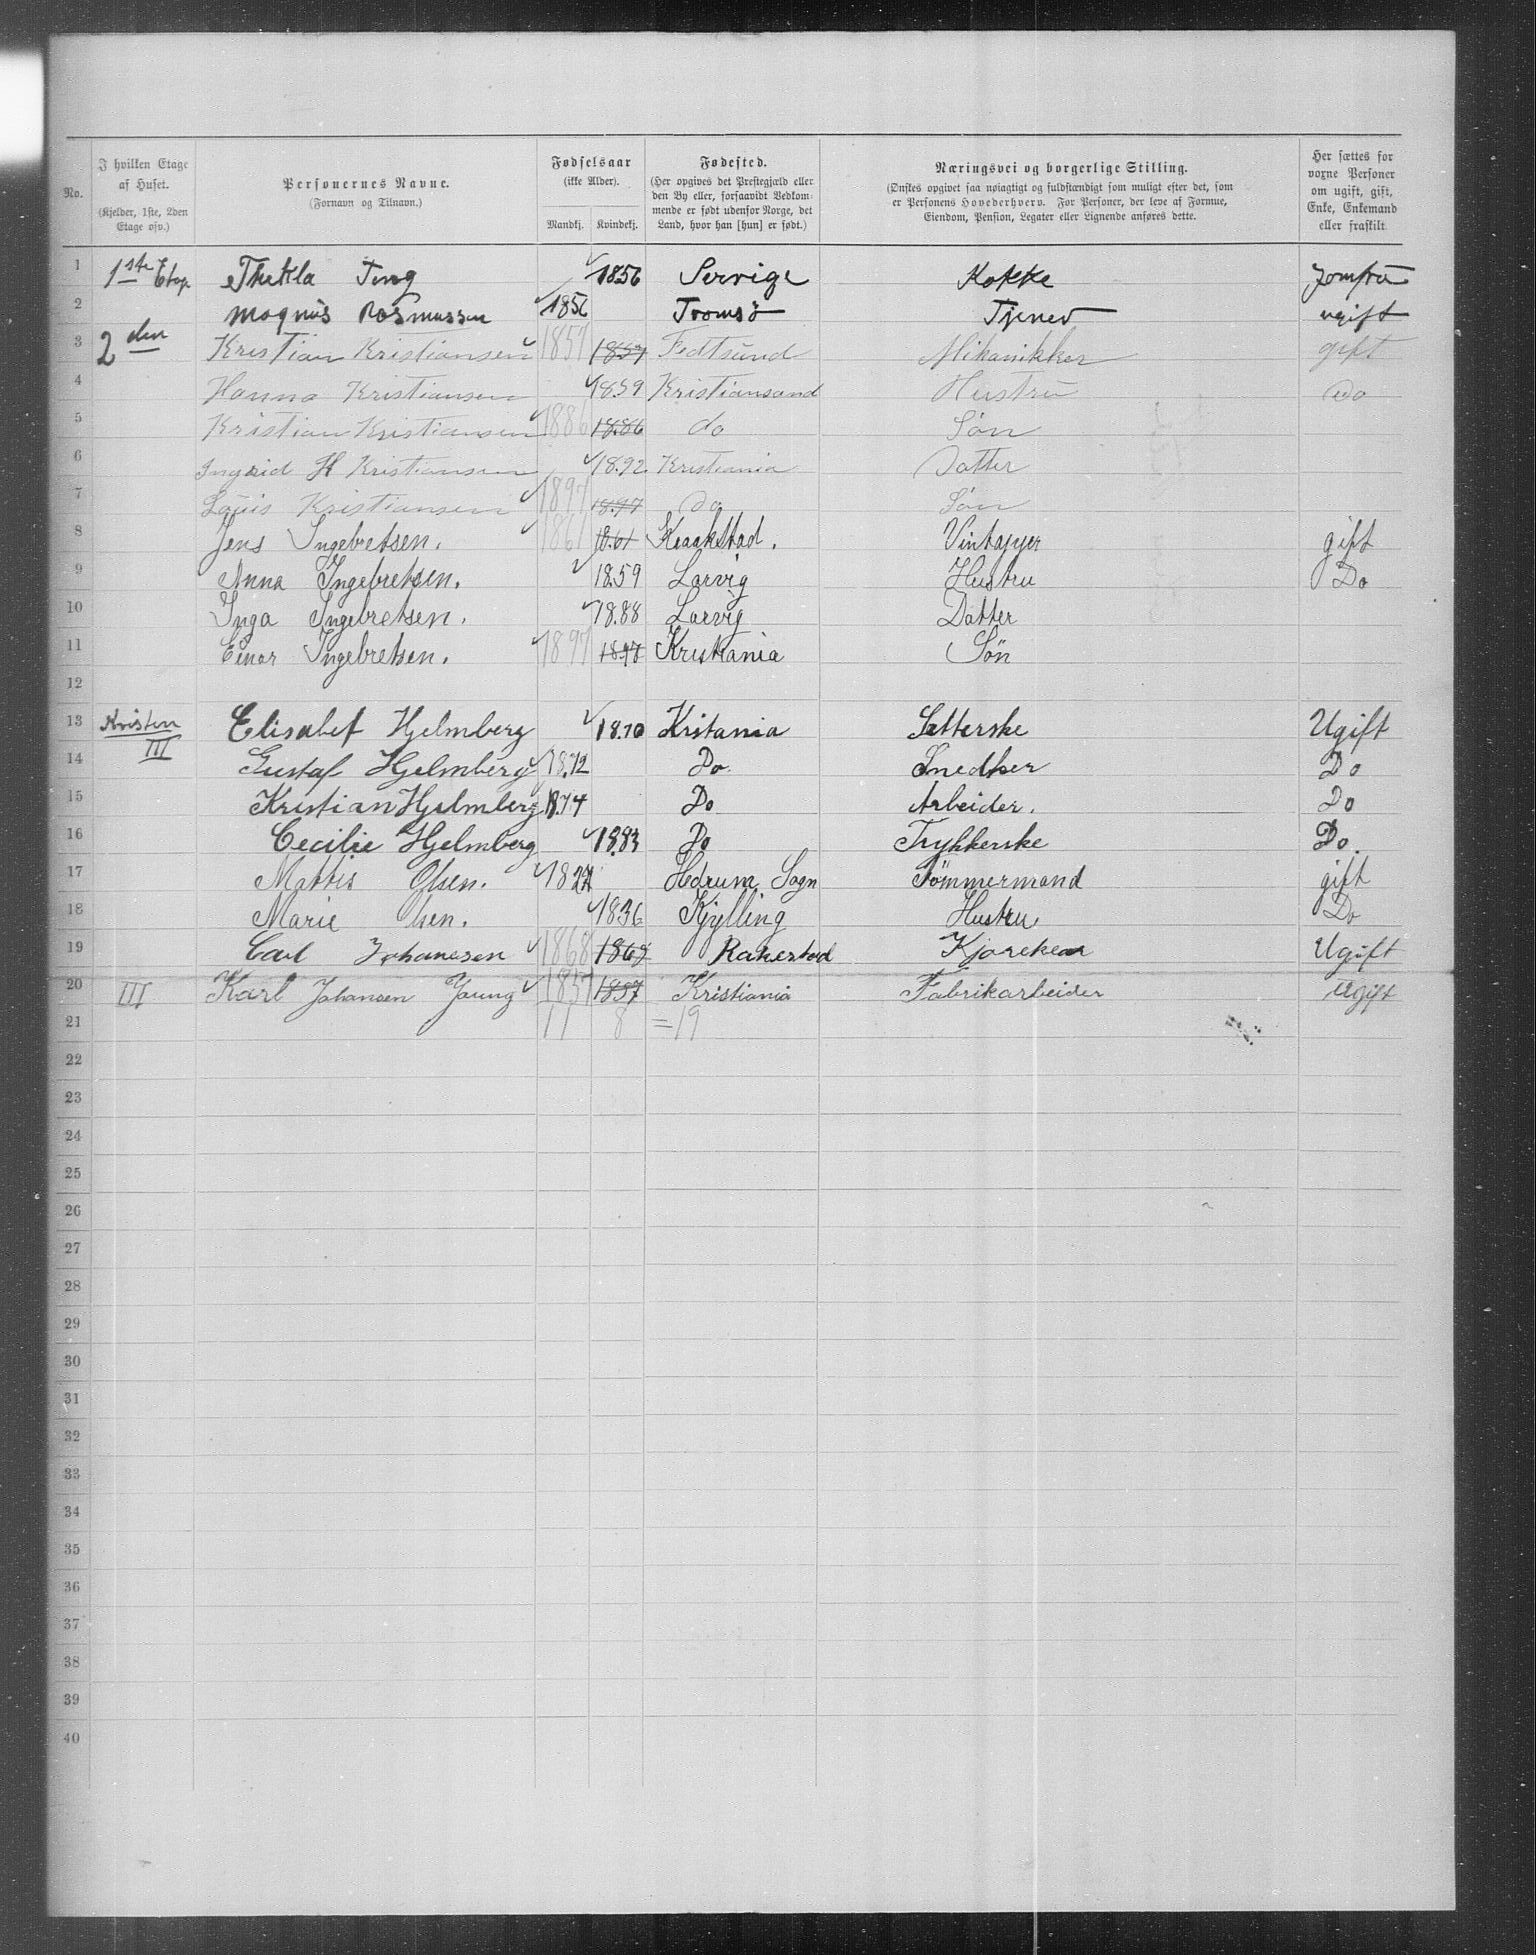 No. | I hvilken Etage af Huset. (Kjelder, 1ste, 2den Etage osv.) | Personernes Navne. (Fornavn og Tilnavn.) | Fødselsaar (ikke Alder). Mandkj. Kvindekj. | Fødested. (Her opgives det Prestegjæld eller den By eller, forsaavidt Vedkommende er født udenfor Norge, det Land, hvor han [hun] er født.) | Næringsvei og borgerlige Stilling. (Ønskes opgivet saa nøiagtigt og fuldstændigt som muligt efter det, som er Personens Hovederhverv. For Personer, der leve af Formue, Eiendom, Pension, Legater eller Lignende anføres dette. | Her sættes for voxne Personer om ugift, gift, Enke, Enkemand eller fraskilt.
1 1ste Etag Thekla Ting 1856 Serrige Kokke Jomfru
2 Magnus Rasmussen 1856 Tromsö Tjener ugift
3 2den Kristian Kristiansen 1857 1857 Fedtsund Mikanikker gift
4 Hanna Kristiansen 1859 Kristiansand Hustru do
5 Kristian Kristiansen 1886 1886 do Søn
6 Ingrid H Kristiansen 1892 Kristiania Datter
7 Louis Kristiansen 1897 1897 do Søn
8 Jens Ingebretsen. 1861 1861 Kraakstad. Vintapper gift
9 Anna Ingebretsen. 1859 Larvig Hustru Do
10 Inga Ingebretsen. 1888 Larvig Datter
11 Einar Ingebretsen. 1897 Kristiania Søn
12
13 Kvisten III Elisabet Hjelmberg 1870 Kristania Sætterske Ugift
14 Gustaf Hjelmberg 1872 Do Snedker Do
15 Kristian Hjelmberg 1874 Do Arbeider. Do
16 Cecilie Hjelmberg 1883 Do Trykkerske Do.
17 Mattis Olsen. 1827 Hedrum Sogn Tömmermand gift
18 Marie Olsen. 1836 Kjylling Hustru Do
19 Carl Johanesen 1868 1868 Rakestad Kjørekar Ugift
20 III Karl Johansen Young 1857 1857 Kristiania Fabrikarbeider Ugift
21 11 8 =19
22
23
24
25
26
27
28
29
30
31
32
33
34
35
36
37
38
39
40